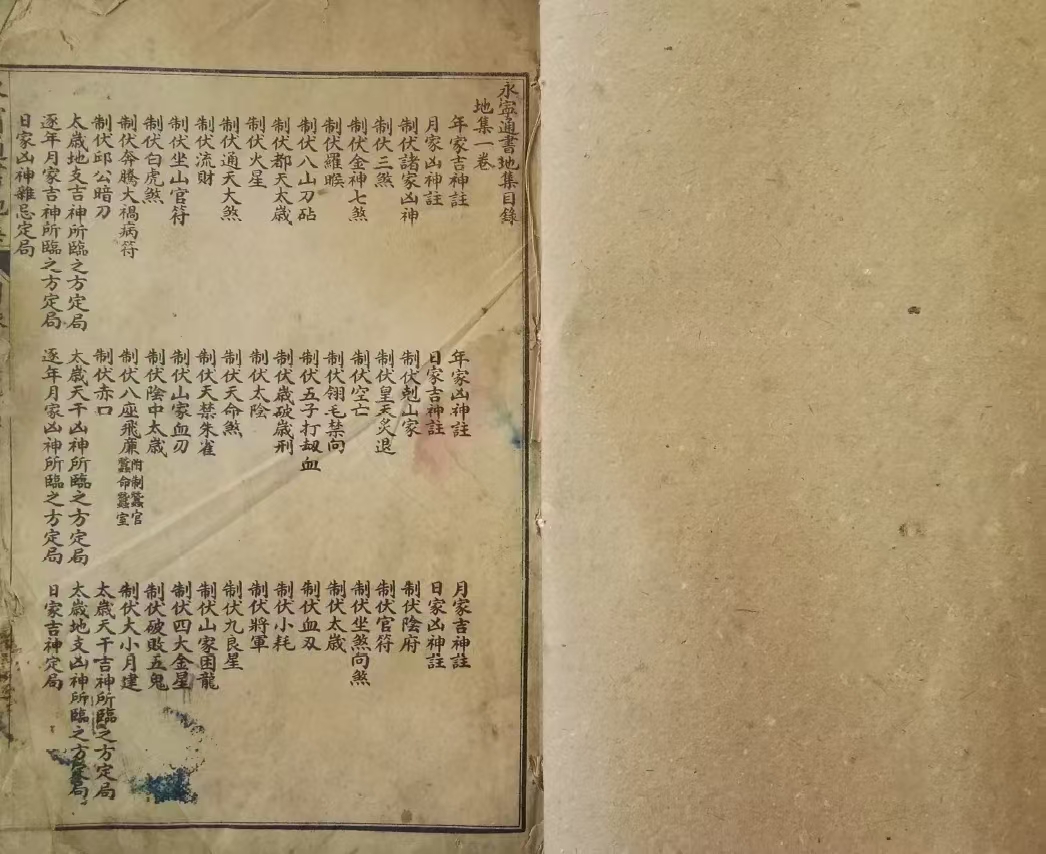 永寍通書地集目錄
地集一卷
年家吉神註
年家凶神註
月家吉神註
月家凶神註
日家吉神註
日家凶神註
制伏諸家凶神
制伏剋山家
制伏陰府
制伏三煞
制伏皇天炙退
制伏官符
制伏金神七煞
制伏空亡
制伏坐煞向煞
制伏羅睺
制伏翎毛禁向
制伏太歲
制伏八山刀砧
制伏五子打刼血
制伏血刄
制伏都天太歲
制伏歲破歲刑
制伏小耗
制伏火星
制伏太陰
制伏將軍
制伏通天大煞
制伏天命煞
制伏九良星
制伏流財
制伏天禁朱雀
制伏山家困龍
制伏坐山官符
制伏山家血刃
制伏四大金星
制伏白虎煞
制伏陰中太歲
制伏破敗五鬼
制伏奔騰大禍病符
制伏八座飛廉
附制蠶官
蠶命蠶室
制伏大小月建
制伏邱公暗刀
制伏赤口
太歲天干吉神所臨之方定局
太歲地支吉神所臨之方定局
太歲天干凶神所臨之方定局
太歲地支凶神所臨之方定局
逐年月家吉神所臨之方定局
逐年月家凶神所臨之方定局
日家吉神定局
日家凶神雜忌定局